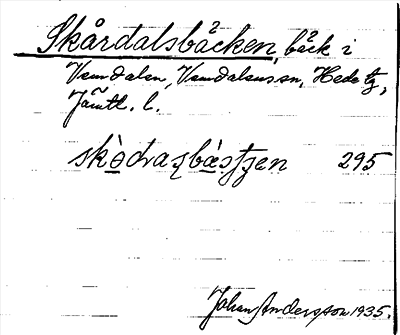 Skårdalsbäcken, bäck i
Vemdalen, Vemdalens sn, Hede tg,
Jämtl. l.
skòdraʂbàsʃʃen 295
Johan Andersson 1935.